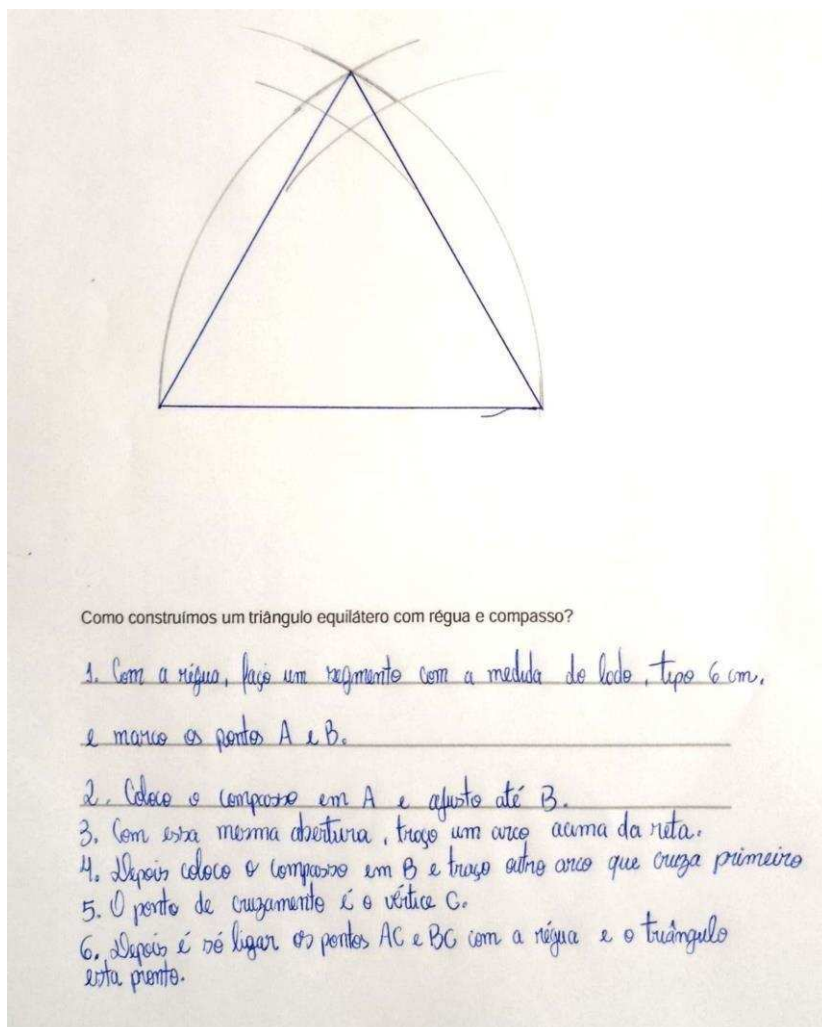 Como construímos um triângulo equilátero com régua e compasso?
1. Com a régua, faço um segmento com a medida do lado, tipo 6 cm,
e marco os pontos A e B.
2. Coloco o compasso em A e ajusto até B.
3. Com essa mesma abertura, traço um arco acima da reta.
4. Depois coloco o compasso em B e traço outro arco que cruza primeiro
5. O ponto de cruzamento é o vértice C.
6. Depois é só ligar os pontos AC e BC com a régua e o triângulo
esta pronto.